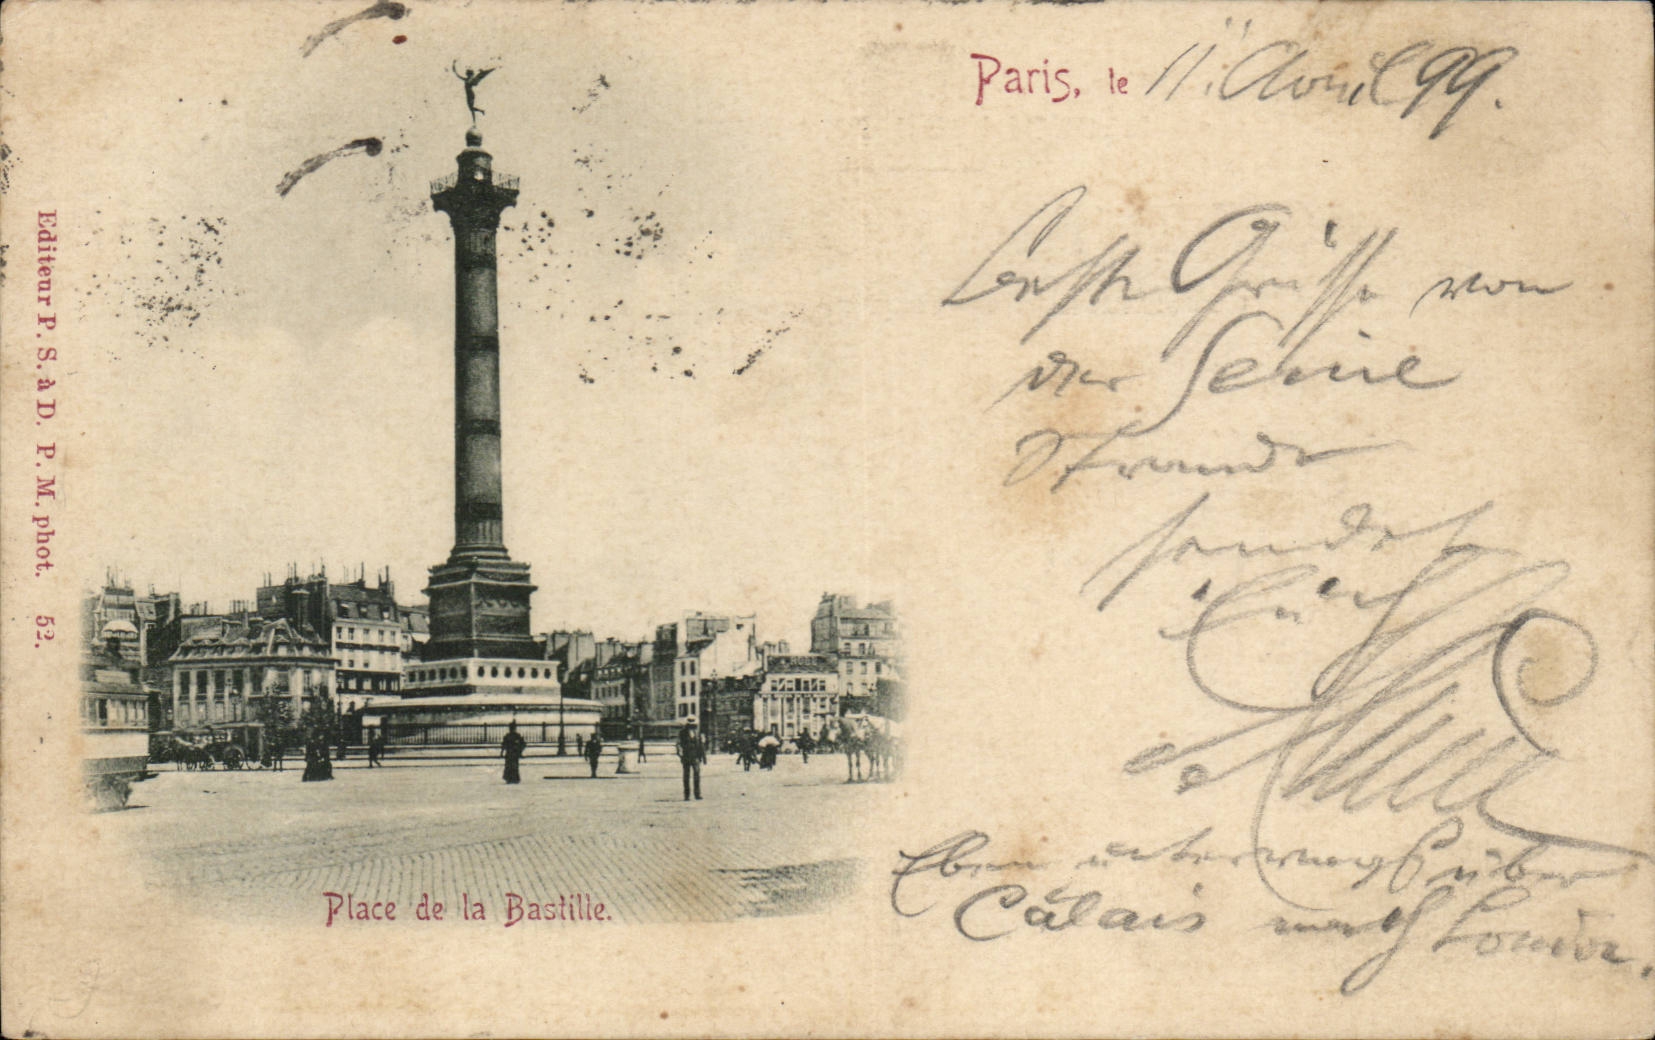 Paris, le 11. Avril 99.
Beste Grüsse von
der Seine
Strande
sendet
Euch
Eben unterwegs über
Calais nach London.
Place de la Bastille.
Editeur P. S. à D. P. M. phot. 52.